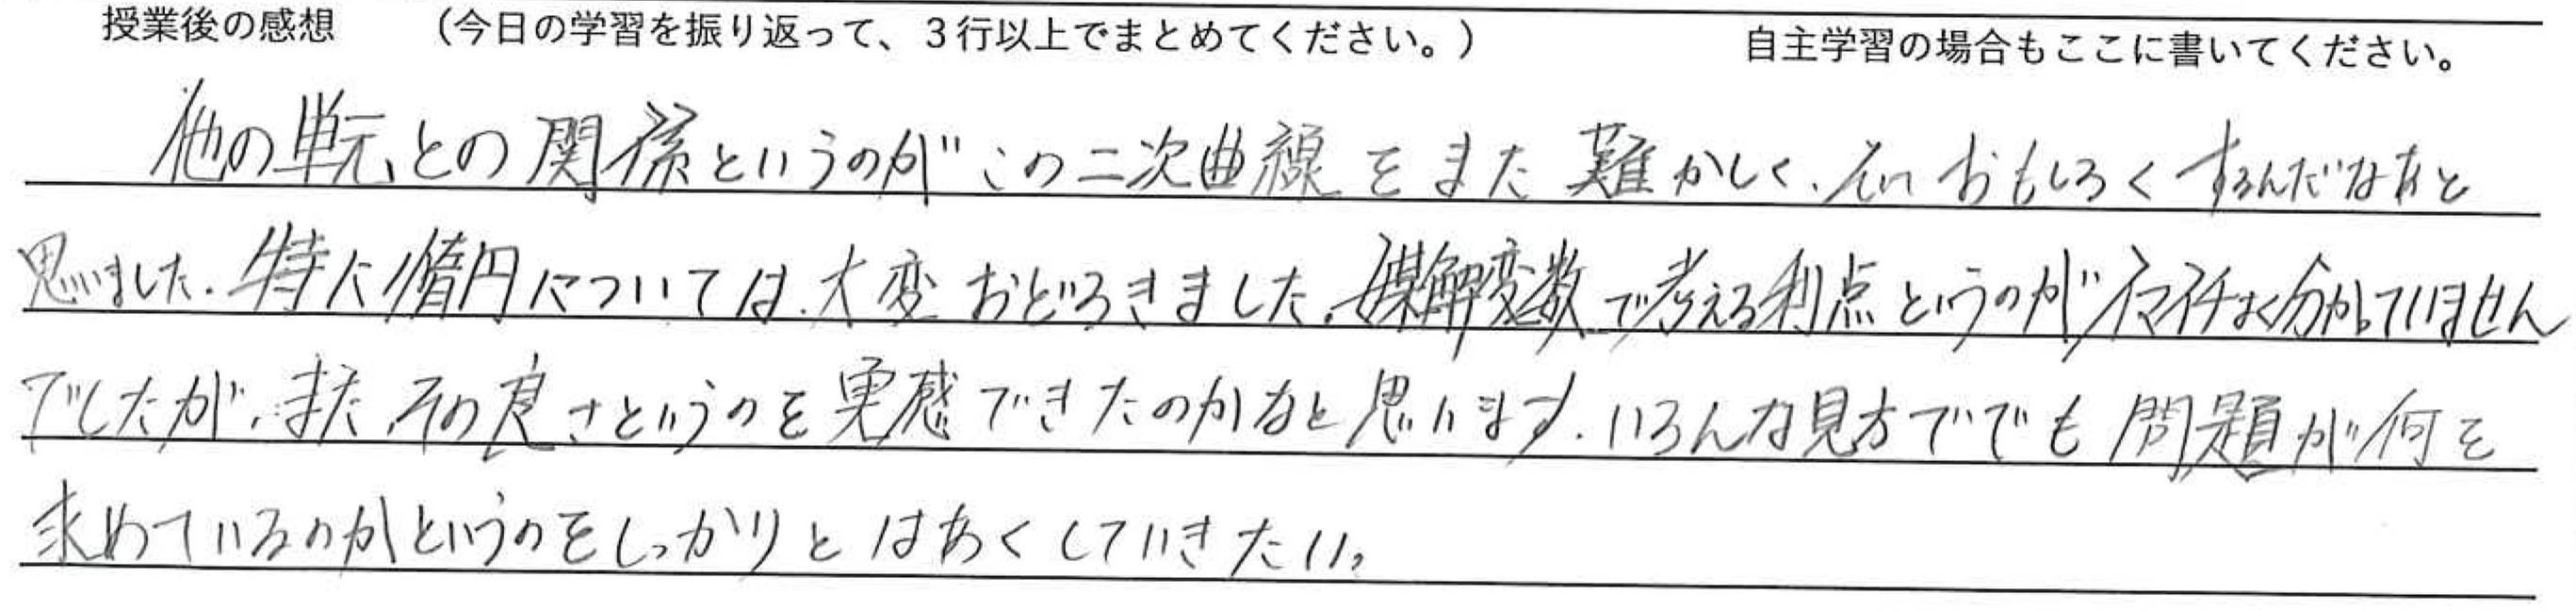 授業後の感想 (今日の学習を振り返って、３行以上でまとめてください。) 自主学習の場合もここに書いてください。
他の単元との関係というのがこの二次曲線をまた難かしく、おもしろくするんだなあと
思いました。特に楕円については、大変おどろきました。媒解変数で考える利点というのがイマイチよく分かっていません
でしたが、また、その良さというのを実感できたのかなと思います。いろんな見方ででも問題が何を
求めているのかというのをしっかりとはあくしていきたい。